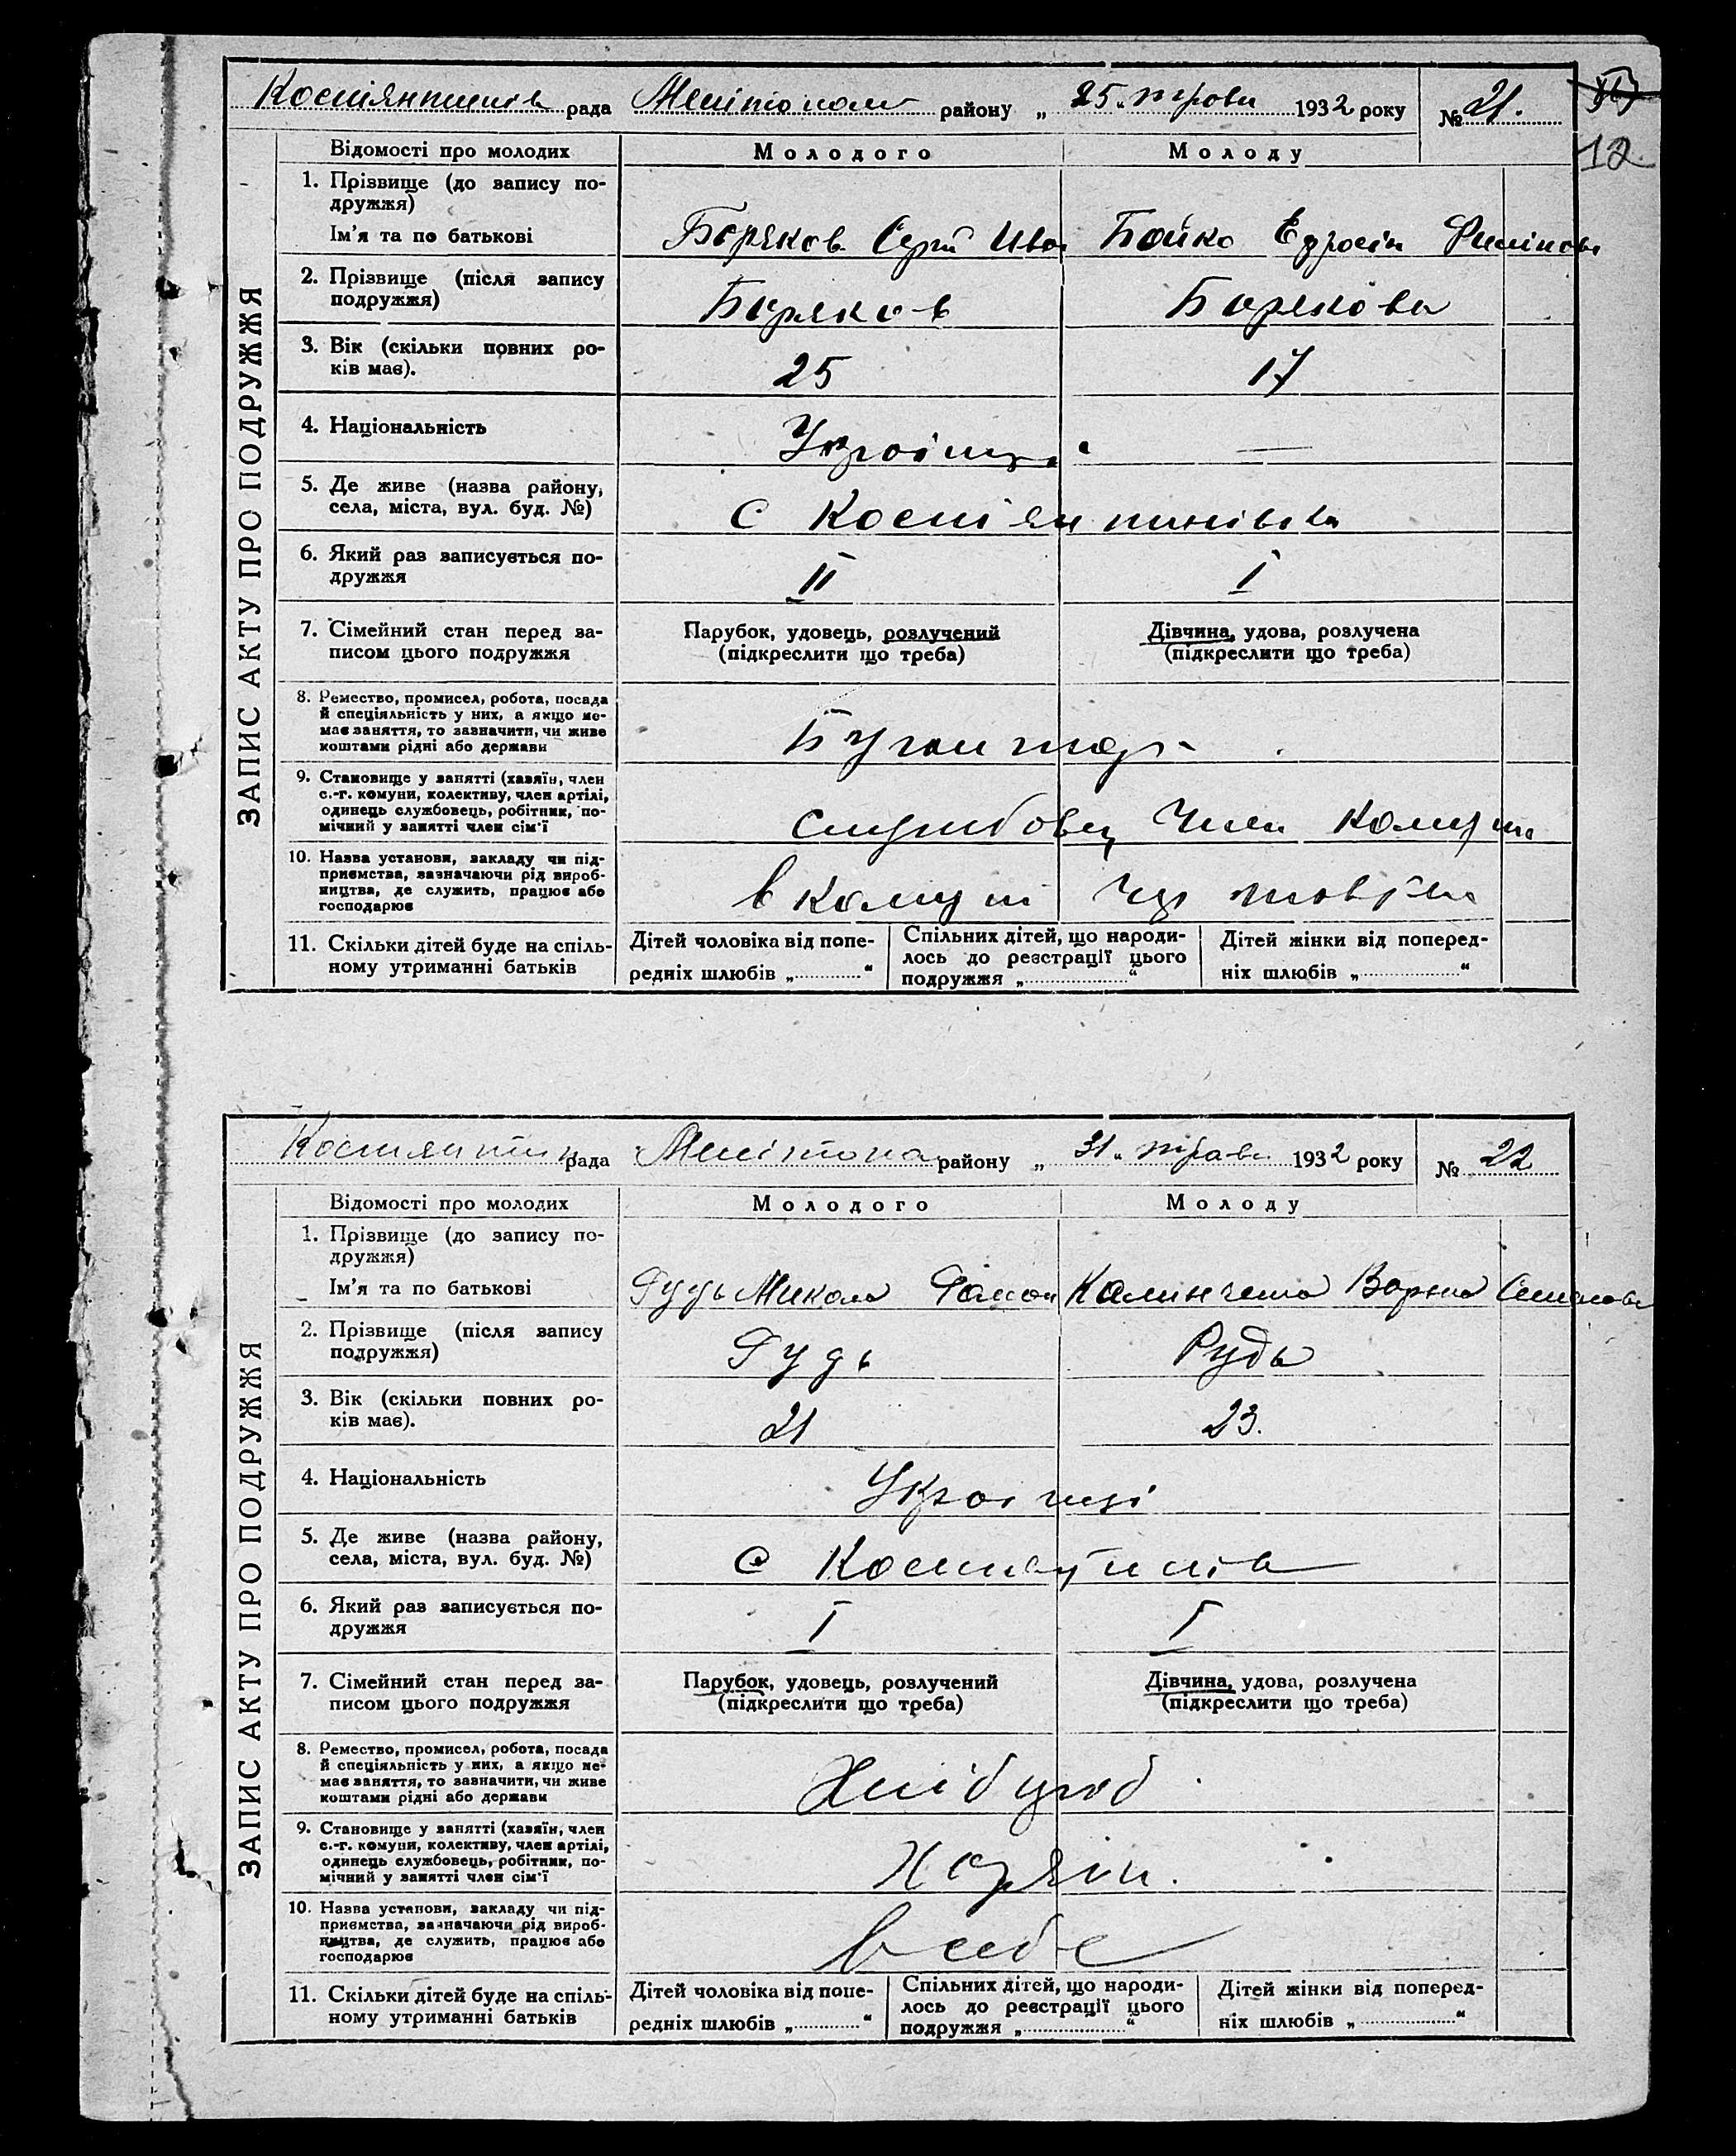 Костянтинів рада Мелітополь району „ 25 „ трови 1932 року № 21.
12
ЗАПИС АКТУ ПРО ПОДРУЖЖЯ
Відомості про молодих Молодого Молоду
1. Прізвище (до запису по-
дружжя)
Ім'я та по батькові Боряков Сергій Іван Бойко Ефросін Филіпова
2. Прізвище (після запису
подружжя) Боряков Борякова
3. Вік (скільки повних ро-
ків має). 25 17
4. Національність Українці —
5. Де живе (назва району,
села, міста, вул. буд. №) с Костянтинівка
6. Який раз записується по-
дружжя II I
7. Сімейний стан перед за-
писом цього подружжя
Парубок, удовець, розлучений
(підкреслити що треба)
Дівчина, удова, розлучена
(підкреслити що треба)
8. Ремество, промисел, робота, посада
й спеціяльність у них, а якщо не-
має заняття, то зазначити, чи живе
коштами рідні або держави
Бугалтер
9. Становище у занятті (хазяїн, член
с.-г. комуни, колективу, член артілі,
одинець службовець, робітник, по-
мічний у занятті член сім'ї
службовец Член комуни
10. Назва установи, закладу чи під-
приємства, зазначаючи рід вироб-
ництва, де служить, працює або
господарює
в комуні
11. Скільки дітей буде на спіль-
ному утриманні батьків
Дітей чоловіка від попе-
редніх шлюбів „ “
Спільних дітей, що народи-
лось до реєстрації цього
подружжя „ “
Дітей жінки від поперед-
ніх шлюбів „ “
Костянтин рада Мелітопо району „ 31 „ трави 1932 року № 22
ЗАПИС АКТУ ПРО ПОДРУЖЖЯ
Відомості про молодих Молодого Молоду
1. Прізвище (до запису по-
дружжя)
Ім'я та по батькові Рудь Микола Калиниченко Варвара
2. Прізвище (після запису
подружжя) Рудь Рудь
3. Вік (скільки повних ро-
ків має). 21 23.
4. Національність Українці
5. Де живе (назва району,
села, міста, вул. буд. №) с Костянтинів
6. Який раз записується по-
дружжя I I
7. Сімейний стан перед за-
писом цього подружжя
Парубок, удовець, розлучений
(підкреслити що треба)
Дівчина, удова, розлучена
(підкреслити що треба)
8. Ремество, промисел, робота, посада
й спеціяльність у них, а якщо не-
має заняття, то зазначити, чи живе
коштами рідні або держави
Хлібороб
9. Становище у занятті (хазяїн, член
с.-г. комуни, колективу, член артілі,
одинець службовець, робітник, по-
мічний у занятті член сім'ї
Хазяін.
10. Назва установи, закладу чи під-
приємства, зазначаючи рід вироб-
ництва, де служить, працює або
господарює
в себе
11. Скільки дітей буде на спіль-
ному утриманні батьків
Дітей чоловіка від попе-
редніх шлюбів „ “
Спільних дітей, що народи-
лось до реєстрації цього
подружжя „ “
Дітей жінки від поперед-
ніх шлюбів „ “